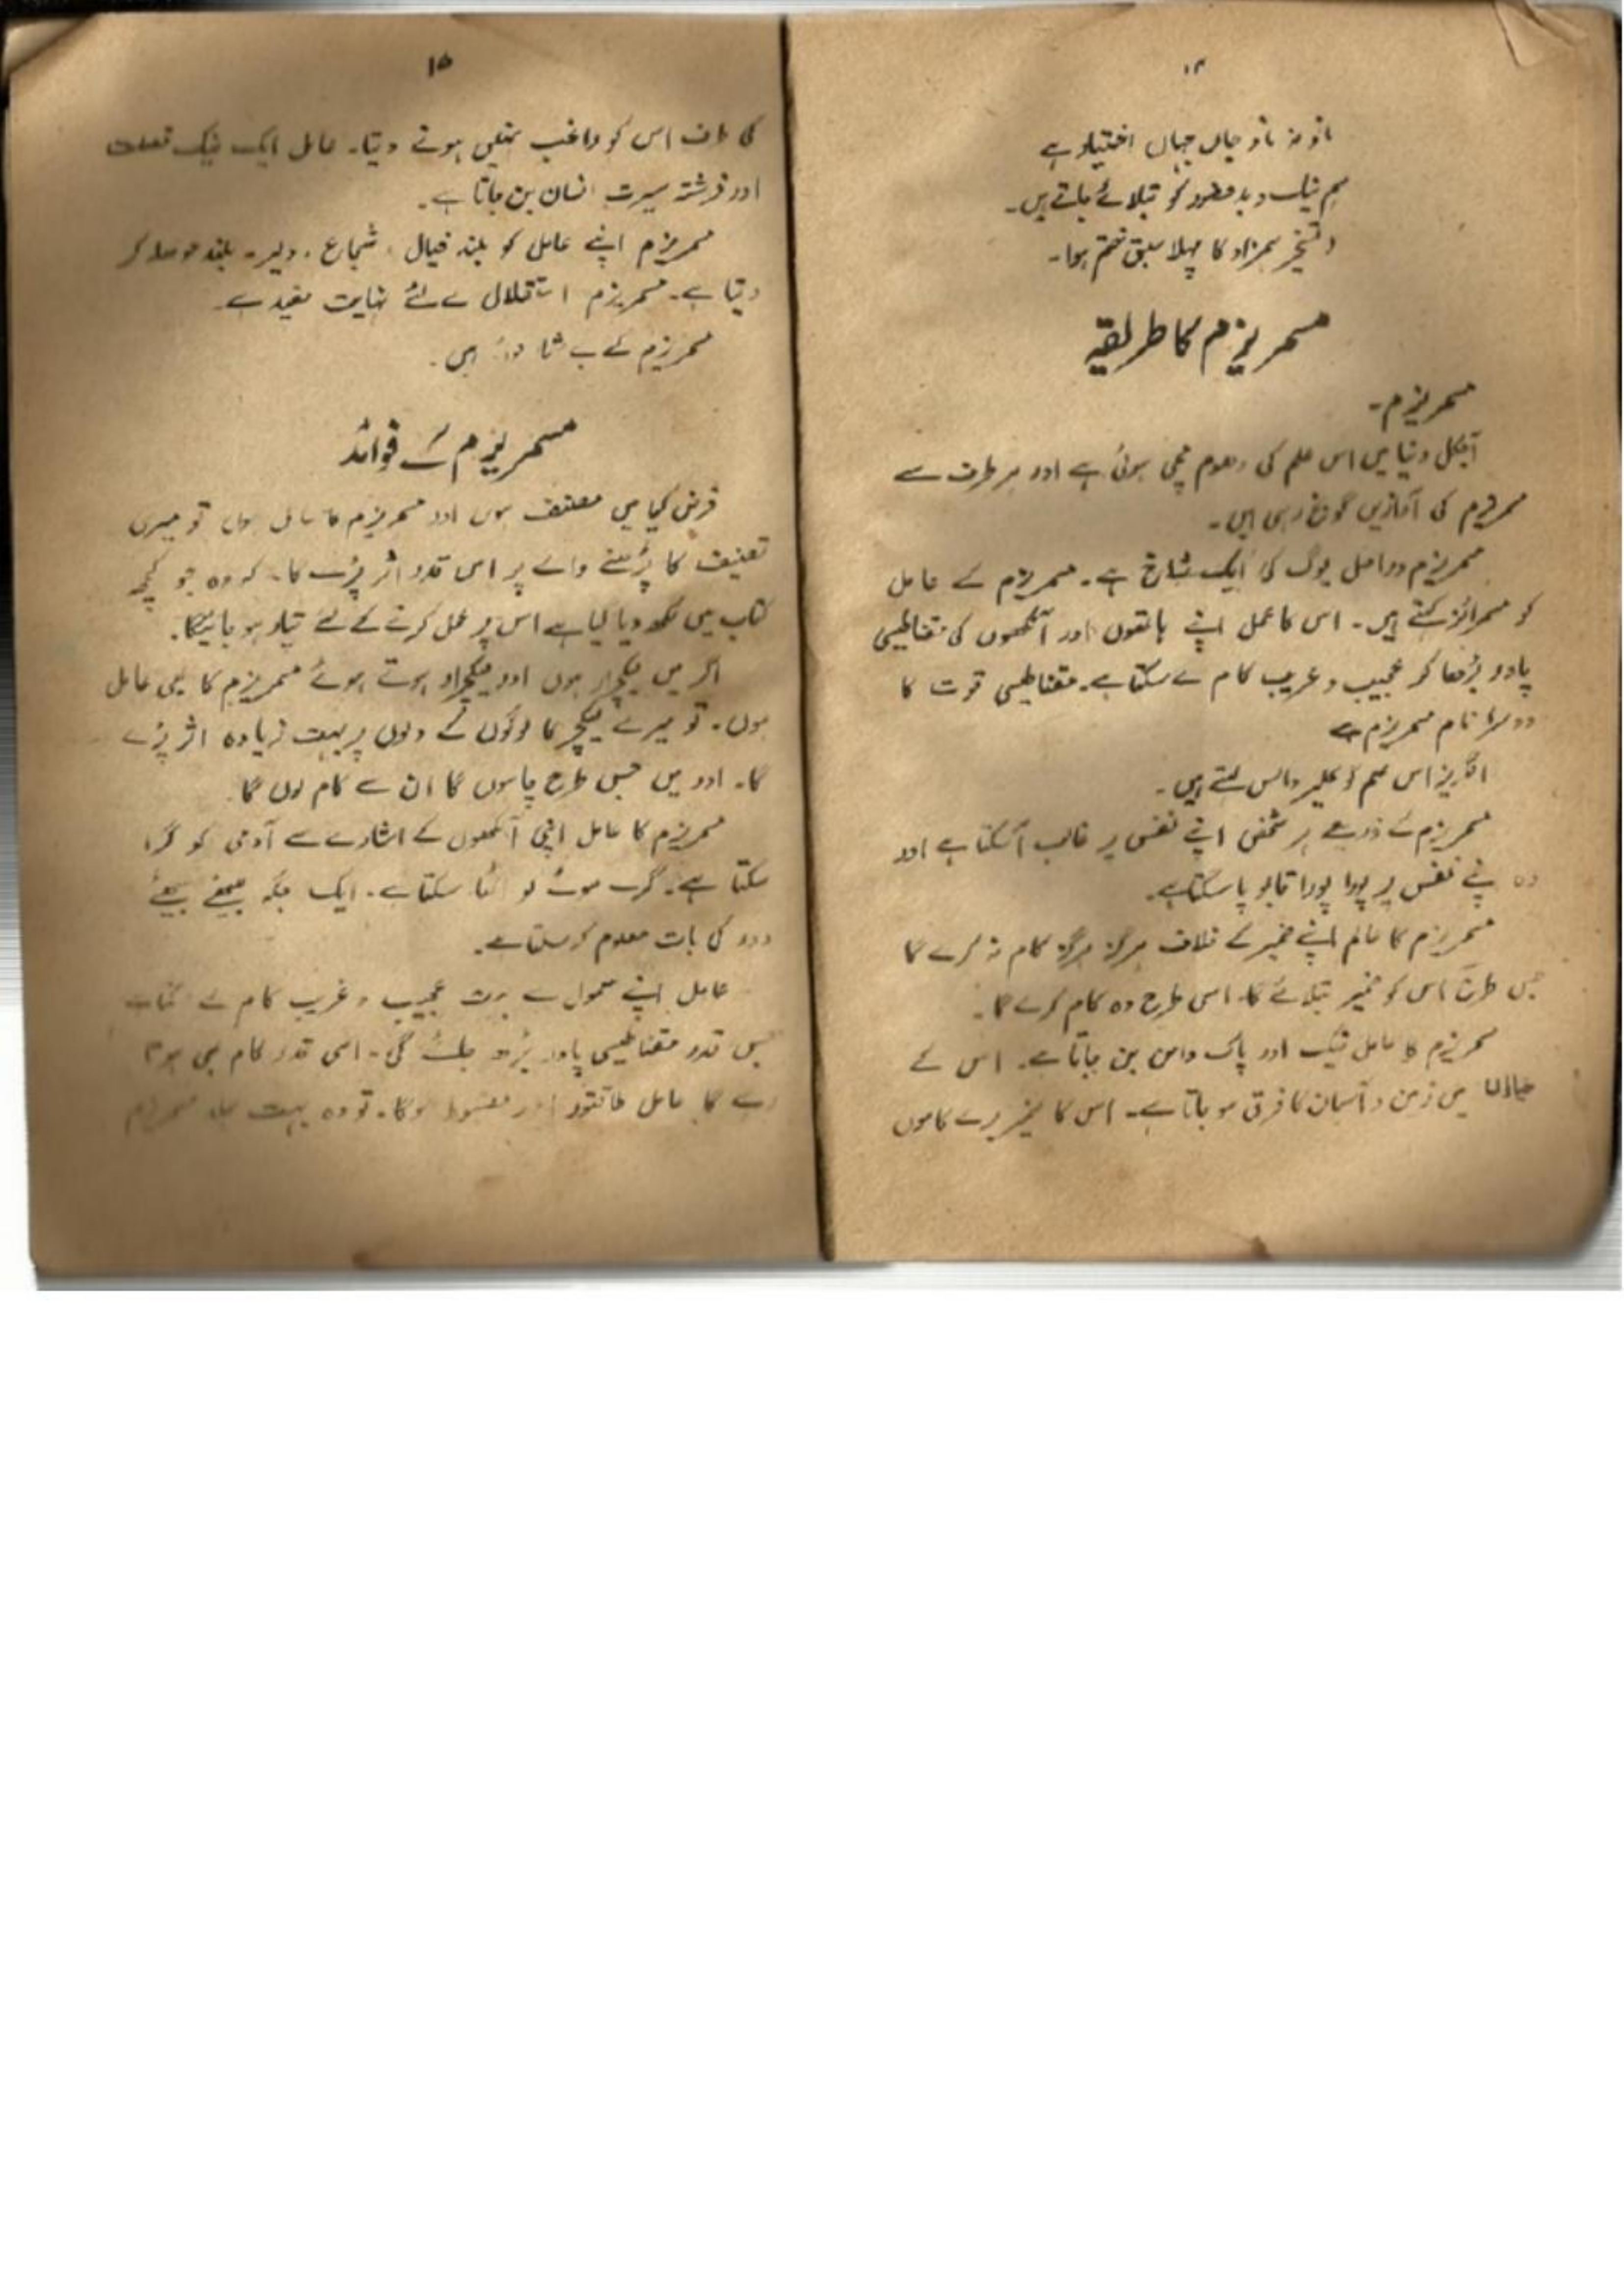 ۱۴
مانو نہ مانو جان جہاں اختیار ہے
ہم نیک و بد حضور کو بتلائے جاتے ہیں۔
تسخیر ہمزاد کا پہلا سبق ختم ہوا۔
مسمریزم کا طریقہ
مسمریزم۔
آجکل دنیا میں اس علم کی دھوم مچی ہوئی ہے اور ہر طرف سے
مسمریزم کی آوازیں گونج رہی ہیں۔
مسمریزم دراصل یوگ کی ایک شاخ ہے۔ مسمریزم کے عامل
کو مسمرائزر کہتے ہیں۔ اس کا عمل اپنے ہاتھوں اور آنکھوں کی مقناطیسی
پاور بڑھا کر عجیب و غریب کام لے سکتا ہے۔ مقناطیسی قوت کا
دوسرا نام مسمریزم ہے
انگریز اس علم کو کہتے ہیں۔
مسمریزم کے ذریعے ہر شخص اپنے نفس پر غالب آسکتا ہے اور
وہ اپنے نفس پر پورا پورا قابو پا سکتا ہے۔
مسمریزم کا عالم اپنے ضمیر کے خلاف ہرگز ہرگز کام نہ کرے گا
جس طرح اس کو ضمیر بتلائے گا۔ اسی طرح وہ کام کرے گا۔
مسمریزم کا عامل نیک اور پاک دامن بن جاتا ہے۔ اس کے
خیالات میں زمین و آسمان کا فرق ہو جاتا ہے۔ اس کا ضمیر برے کاموں
۱۵
کی طرف اس کو راغب نہیں ہونے دیتا۔ عامل ایک نیک خصلت
اور فرشتہ سیرت انسان بن جاتا ہے۔
مسمریزم اپنے عامل کو بلند خیال، شجاع۔ دلیر۔ بلند حوصلہ کر
دیتا ہے۔ مسمریزم استقلال کے لئے نہایت مفید ہے۔
مسمریزم کے بے شمار فوائد ہیں۔
مسمریزم کے فوائد
فرض کیا میں مصنف ہوں اور مسمریزم کا عامل ہوں تو میری
تصنیف کا پڑھنے والے پر اس قدر اثر پڑے گا۔ کہ وہ جو کچھ
کتاب میں لکھ دیا گیا ہے اس پر عمل کرنے کے لئے تیار ہو جائیگا۔
اگر میں لیکچرار ہوں اور لیکچرار ہوتے ہوئے مسمریزم کا بھی عامل
ہوں۔ تو میرے لیکچر کا لوگوں کے دلوں پر بہت زیادہ اثر پڑے
گا۔ اور میں جس طرح چاہوں گا ان سے کام لوں گا
مسمریزم کا عامل اپنی آنکھوں کے اشارے سے آدمی کو گرا
سکتا ہے۔ گرے ہوئے کو اٹھا سکتا ہے۔ ایک جگہ بیٹھے بیٹھے
دور کی بات معلوم کر سکتا ہے۔
عامل اپنے معمول سے بہت عجیب و غریب کام لے سکتا ہے
جس قدر مقناطیسی پاور بڑھ جائے گی۔ اسی قدر کام بھی ہوتا
رہے گا عامل طاقتور اور مضبوط ہوگا۔ تو وہ بہت جلد مسمریزم